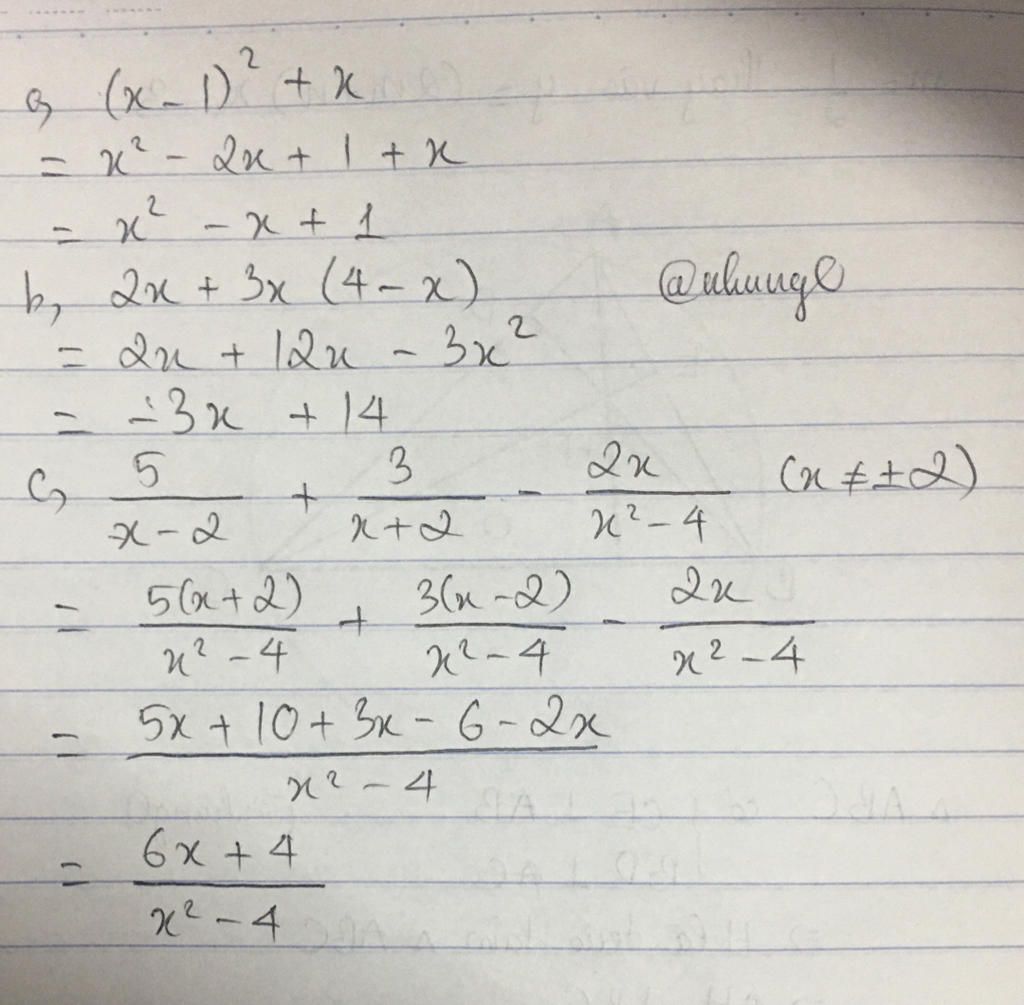 a, (x - 1)² + x
= x² - 2x + 1 + x
= x² - x + 1
b, 2x + 3x (4 - x) @nhungl
= 2x + 12x - 3x²
= -3x + 14
c, 5/(x - 2) + 3/(x + 2) - 2x/(x² - 4) (x ≠ ±2)
= 5(x + 2)/(x² - 4) + 3(x - 2)/(x² - 4) - 2x/(x² - 4)
= (5x + 10 + 3x - 6 - 2x)/(x² - 4)
= (6x + 4)/(x² - 4)